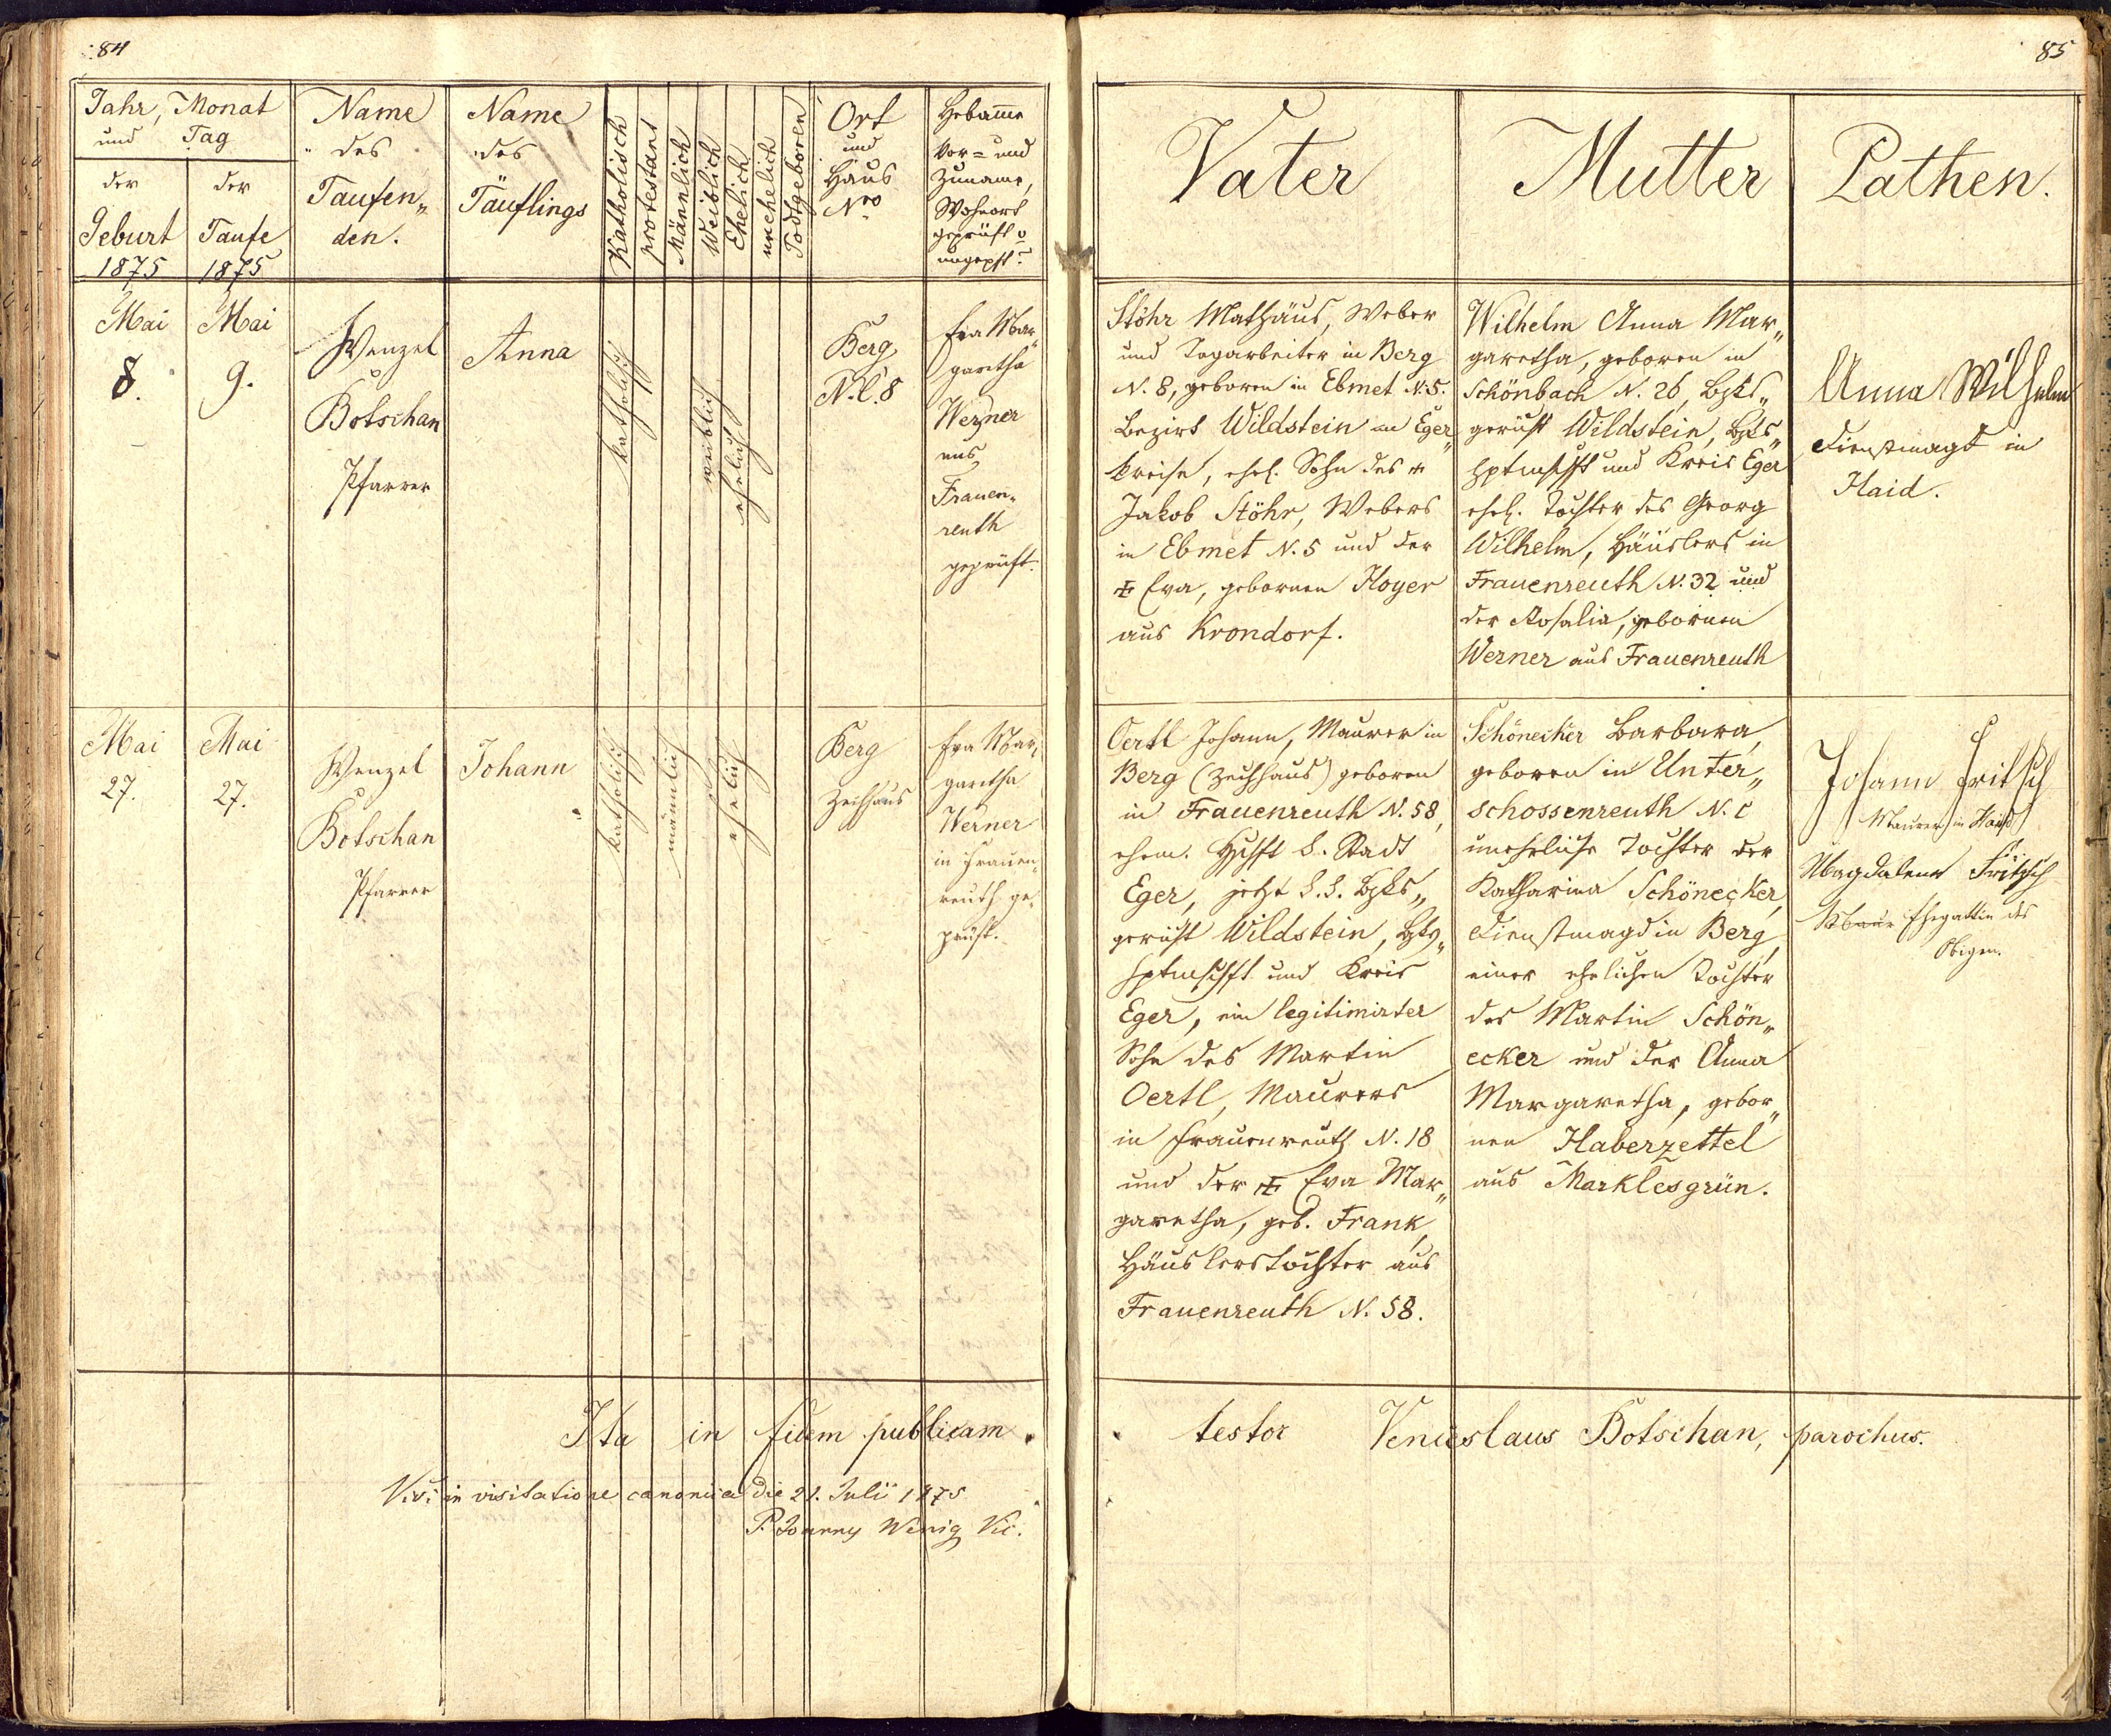 84
Jahr, Monat
und Tag
der
Geburt
1875
der
Taufe
1875
Name
des
Taufen„
den.
Name
des
Täuflings
Katholisch
protestant
Männlich
Weiblich
Ehelich
unehelich
Todtgeboren
Ort
und
Haus
Nro
Hebamme
Vor= und
Zuname,
Wohnort
geprüft o
ungepft.
Mai
8.
Mai
9.
Wenzel
Botschan
Pfarrer
Anna
katholisch
weiblich
ehelich
Berg
N.C. 8
Eva Mar„
garetha
Werner
aus
Frauen„
reuth
geprüft.
Mai
27.
Mai
27.
Wenzel
Botschan
Pfarrer
Johann
katholisch
männlich
ehelich
Berg
Zechhaus
Eva Mar„
garetha
Werner
in Frauen„
reuth ge„
prüft.
Ita in fidem publicam
Vidi in visitatione canonica die 21. Julii 1875
P. Wenig Vic.
85
Vater
Mutter
Pathen.
Stöhr Mathäus, Weber
und Tagarbeiter in Berg
N. 8, geboren in Ebmet N. 5.
Bezirk Wildstein im Eger„
kreise, ehel. Sohn des +
Jakob Stöhr, Webers
in Ebmet N. 5 und der
+ Eva, gebornen Hoyer
aus Krondorf.
Wilhelm Anna Mar„
garetha, geboren in
Schönbach N. 26, Bzks„
gericht Wildstein, Bzks„
hptmschft und Kreis Eger
ehel. Tochter des Georg
Wilhelm, Häuslers in
Frauenreuth N. 32 und
der Rosalia, gebornen
Werner aus Frauenreuth
Anna Wilhelm
Dienstmagd in
Haid.
Oertl Johann, Maurer in
Berg (Zechhaus) geboren
in Frauenreuth N. 58,
ehem. Hschft k. Stadt
Eger, jetzt k. k. Bzks„
gericht Wildstein, Bzks„
hptmschft und Kreis
Eger, ein legitimirter
Sohn des Martin
Oertl, Maurers
in Frauenreuth N. 18
und der + Eva Mar„
garetha, geb. Frank,
Häuslerstochter aus
Frauenreuth N. 58.
Schönecker Barbara,
geboren in Unter„
schossenreuth N. C
uneheliche Tochter der
Katharina Schönecker,
Dienstmagd in Berg,
einer ehelichen Tochter
des Martin Schön„
ecker und der Anna
Margaretha, gebor„
nen Haberzettel
aus Marklesgrün.
Johann Fritsch
Maurer in Haid
Magdalena Fritsch
Ehegattin des
Obigen.
testor Venceslaus Botschan, parochus.